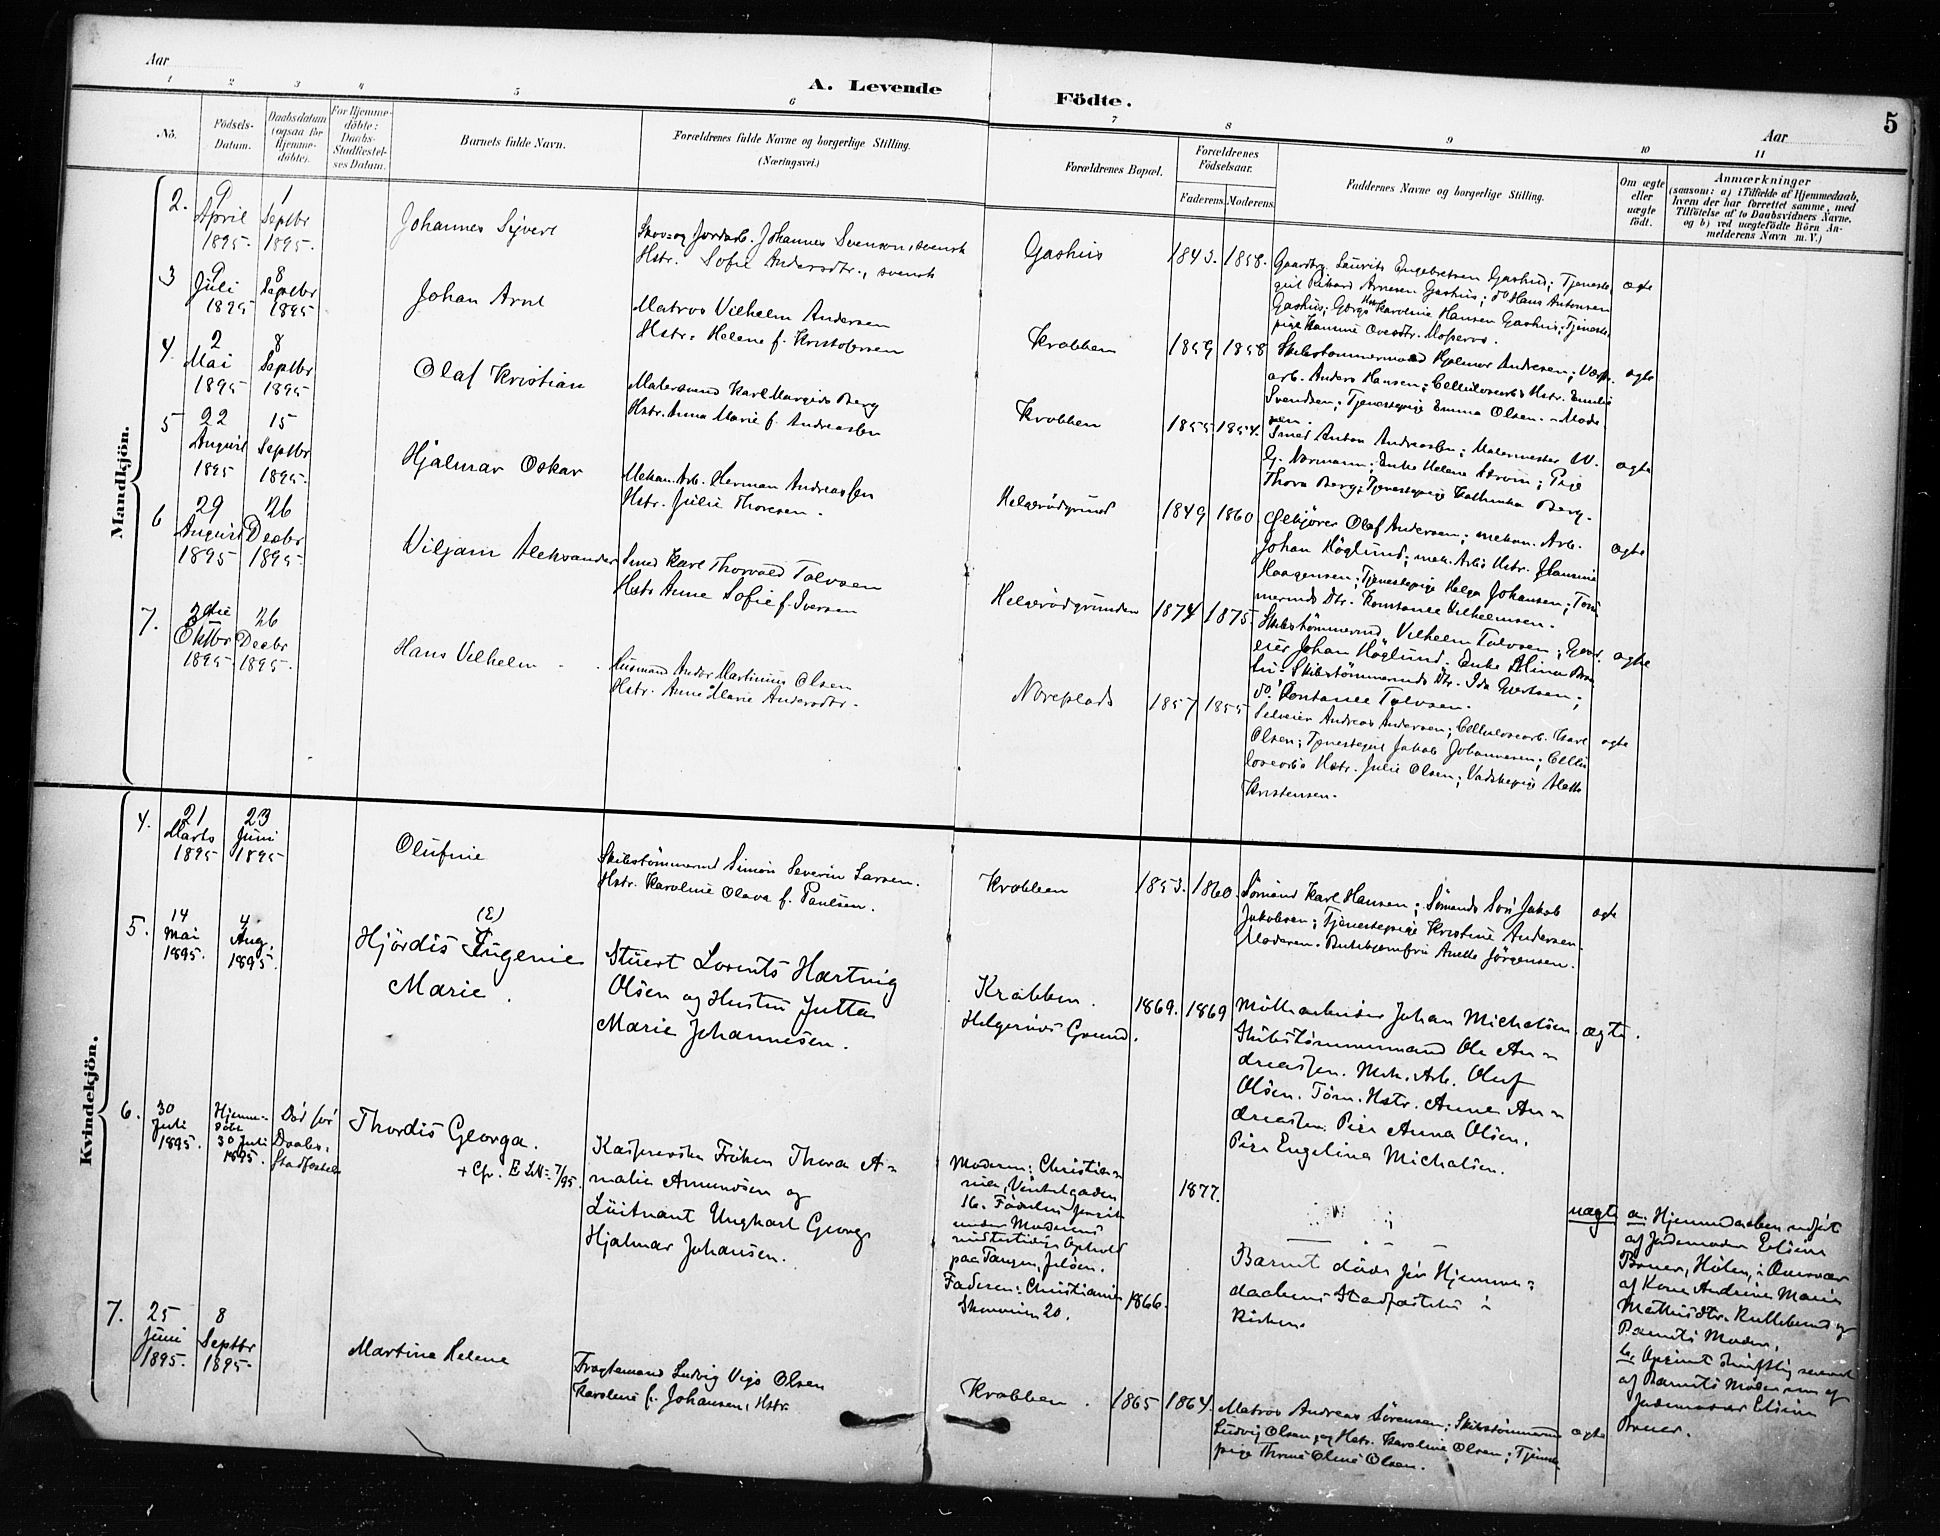 Aar
A. Levende Födte.
Aar
5
1 2 3 4 5 6 7 8 9 10 11
No.
Födsels-
Datum.
Daabsdatum
(ogsaa for
Hjemme-
döbte).
For Hjemme-
döbte:
Daabs-
Stadfæstel-
ses Datum.
Barnets fulde Navn.
Forældrenes fulde Navne og borgerlige Stilling.
(Næringsvei.)
Forældrenes Bopæl.
Forældrenes
Födselsaar.
Faderens. Moderens.
Faddernes Navne og borgerlige Stilling.
Om ægte
eller
uægte
födt.
Anmærkninger
(saasom: a) i Tilfælde af Hjemmedaab,
hvem der har forrettet samme, med
Tilföielse af to Daabsvidners Navne,
og b) ved uægtefödte Börn An-
melderens Navn m. V.)
Mandkjön.
2.
9
April
1895
1
Septbr
1895.
Johannes Sigvert
Skov- og Jordarb. Johannes Svenson, svensk
Hstr. Sofie Andersdtr., svensk
Gashus
1843. 1858.
Gaardbr. Laurits Engebretsen Gashus; Tjeneste
gut Rikard Arnesen Gashus; do Hans Antonsen
Gashus; Hstr. Karoline Hansen Gashus; Tjeneste
pige Hanine Ovesdtr.
ægte
3
9
Juli
1895
8
Septbr
1895
Johan Arnt
Matros Vilhelm Andersen
Hstr. Helene f. Kristofersen
Krabben
1859 1858
Skibstømmermand Hjalmar Andresen;
arb. Anders Hansen; Cellulosearbs Hstr. Emilie
Svendsen; Tjenestepige Emma Olsen. - Mode
ren.
ægte
4.
2
Mai
1895
8
Septbr
1895
Olaf Kristian
Malersvend Karl Margido Berg
Hstr. Anna Marie f. Andreassen
Krabben
1855 1854.
Smed Anton Andreassen; Malermester W.
G. Normann; Enke Helene Strøm; Pige
Thora Berg; Tjenestepige Kathinka Berg.
ægte
5
22
August
1895
15
Septbr
1895.
Hjalmar Oskar
Mekan. Arb. Herman Andreassen
Hstr. Julie Thoresen.
Helgerødgrund
1849 1860
Ølkjører Olaf Andersen; mekan. Arb.
Johan Höglund; mek. Arbs Hstr. Hansine
Haagensen; Tjenestepige Helga Johansen; Tøm
mermds Dtr. Konstanse Vilhelmsen.
ægte
6
29
August
1895
26
Decbr
1895
Viljam Aleksander
Smed Karl Thorvald Tolvsen
Hstr. Anne Sofie f. Iversen
Helgerødgrunden
1874 1875
Skibstømmermd Vilhelm Tolvsen; Gaard
eier Johan Höglund; Enke Elina
Skibstømmermds Dtr. Ida Gjertsen;
do. Konstanse Tolvsen.
ægte
7.
3die
Oktbr
1895
26
Decbr
1895.
Hans Vilhelm
Husmand Anders Martinius Olsen
Hstr. Anne Marie Andersdtr.
Noreplads
1857 1855
Selveier Andreas Andersen; Cellulosearb. Karl
Olsen; Tjenestegut Jakob Johannesen; Cellu
losearbs Hstr. Julie Olsen; Vadskepige Mathe
Kristensen.
ægte
Kvindekjön.
4.
21
Marts
1895
23
Juni
1895
Olufine
Skibstømmermd Simon Severin Larsen.
Hstr. Karoline Olava f. Paulsen.
Krabben
1853. 1860.
Sømand Karl Hansen; Sømands Søn Jakob
Jakobsen; Tjenestepige Kristine Andersen
Moderen. Butikjomfru Anette Jørgensen.
ægte
5.
14
Mai
1895.
4
Aug.
1895.
(E)
Hjördis Eugenie
Marie.
Stuert Lorents Hartvig
Olsen og Hustru Jutta
Marie Johannesen.
Krabben.
Helgerøds Grund.
1869. 1869
Møllearbeider Johan Michalsen
Skibstømmermand Ole An-
dreassen. Mek. Arb. Oluf
Olsen. Tøm. Hstr. Anne An-
dreassen. Pige Anna Olsen.
Pige Engelina Michalsen.
ægte.
6.
30
Juli
1895.
Hjemme-
døbt
30 Juli
1895.
Død før
Daabs-
Stadfæstel
Thordis Georga.
+ Cfr. E L № 7/95.
Frøken Thora A-
malie Amundsen og
Løitnant Unghart Georg
Hjalmar Johansen.
Moderen: Christia-
nia,
16. Fødselen foregik
under Moderens
midlertidige Ophold
paa Tangen, Jeløen.
Faderen: Christiania
20.
1866. 1877.
Barnet døde før Hjemme-
daabens Stadfæstelse i
Kirken.
uægte
a. Hjemmedaaben udført
af Jordemoder Elsine
Bruer, Høien, i Overvær
af Kone Andrine Marie
Mathisdtr. og
Barnets Moder.
b. Opgivet skriftlig
af Barnets Moder samt af
Jordemoder Elsine
Bruer.
7.
25
Juni
1895.
8
Septbr
1895.
Martine Helene
Fragtemand Ludvig Vigo Olsen
Karoline f. Johansen, Hstr.
Krabben.
1865 1864.
Matros Andreas Sørensen; Skibstømmermd
Ludvig Olsen, og Hstr. Karoline Olsen; Tjeneste
pige Thomine Oline Olsen.
ægte